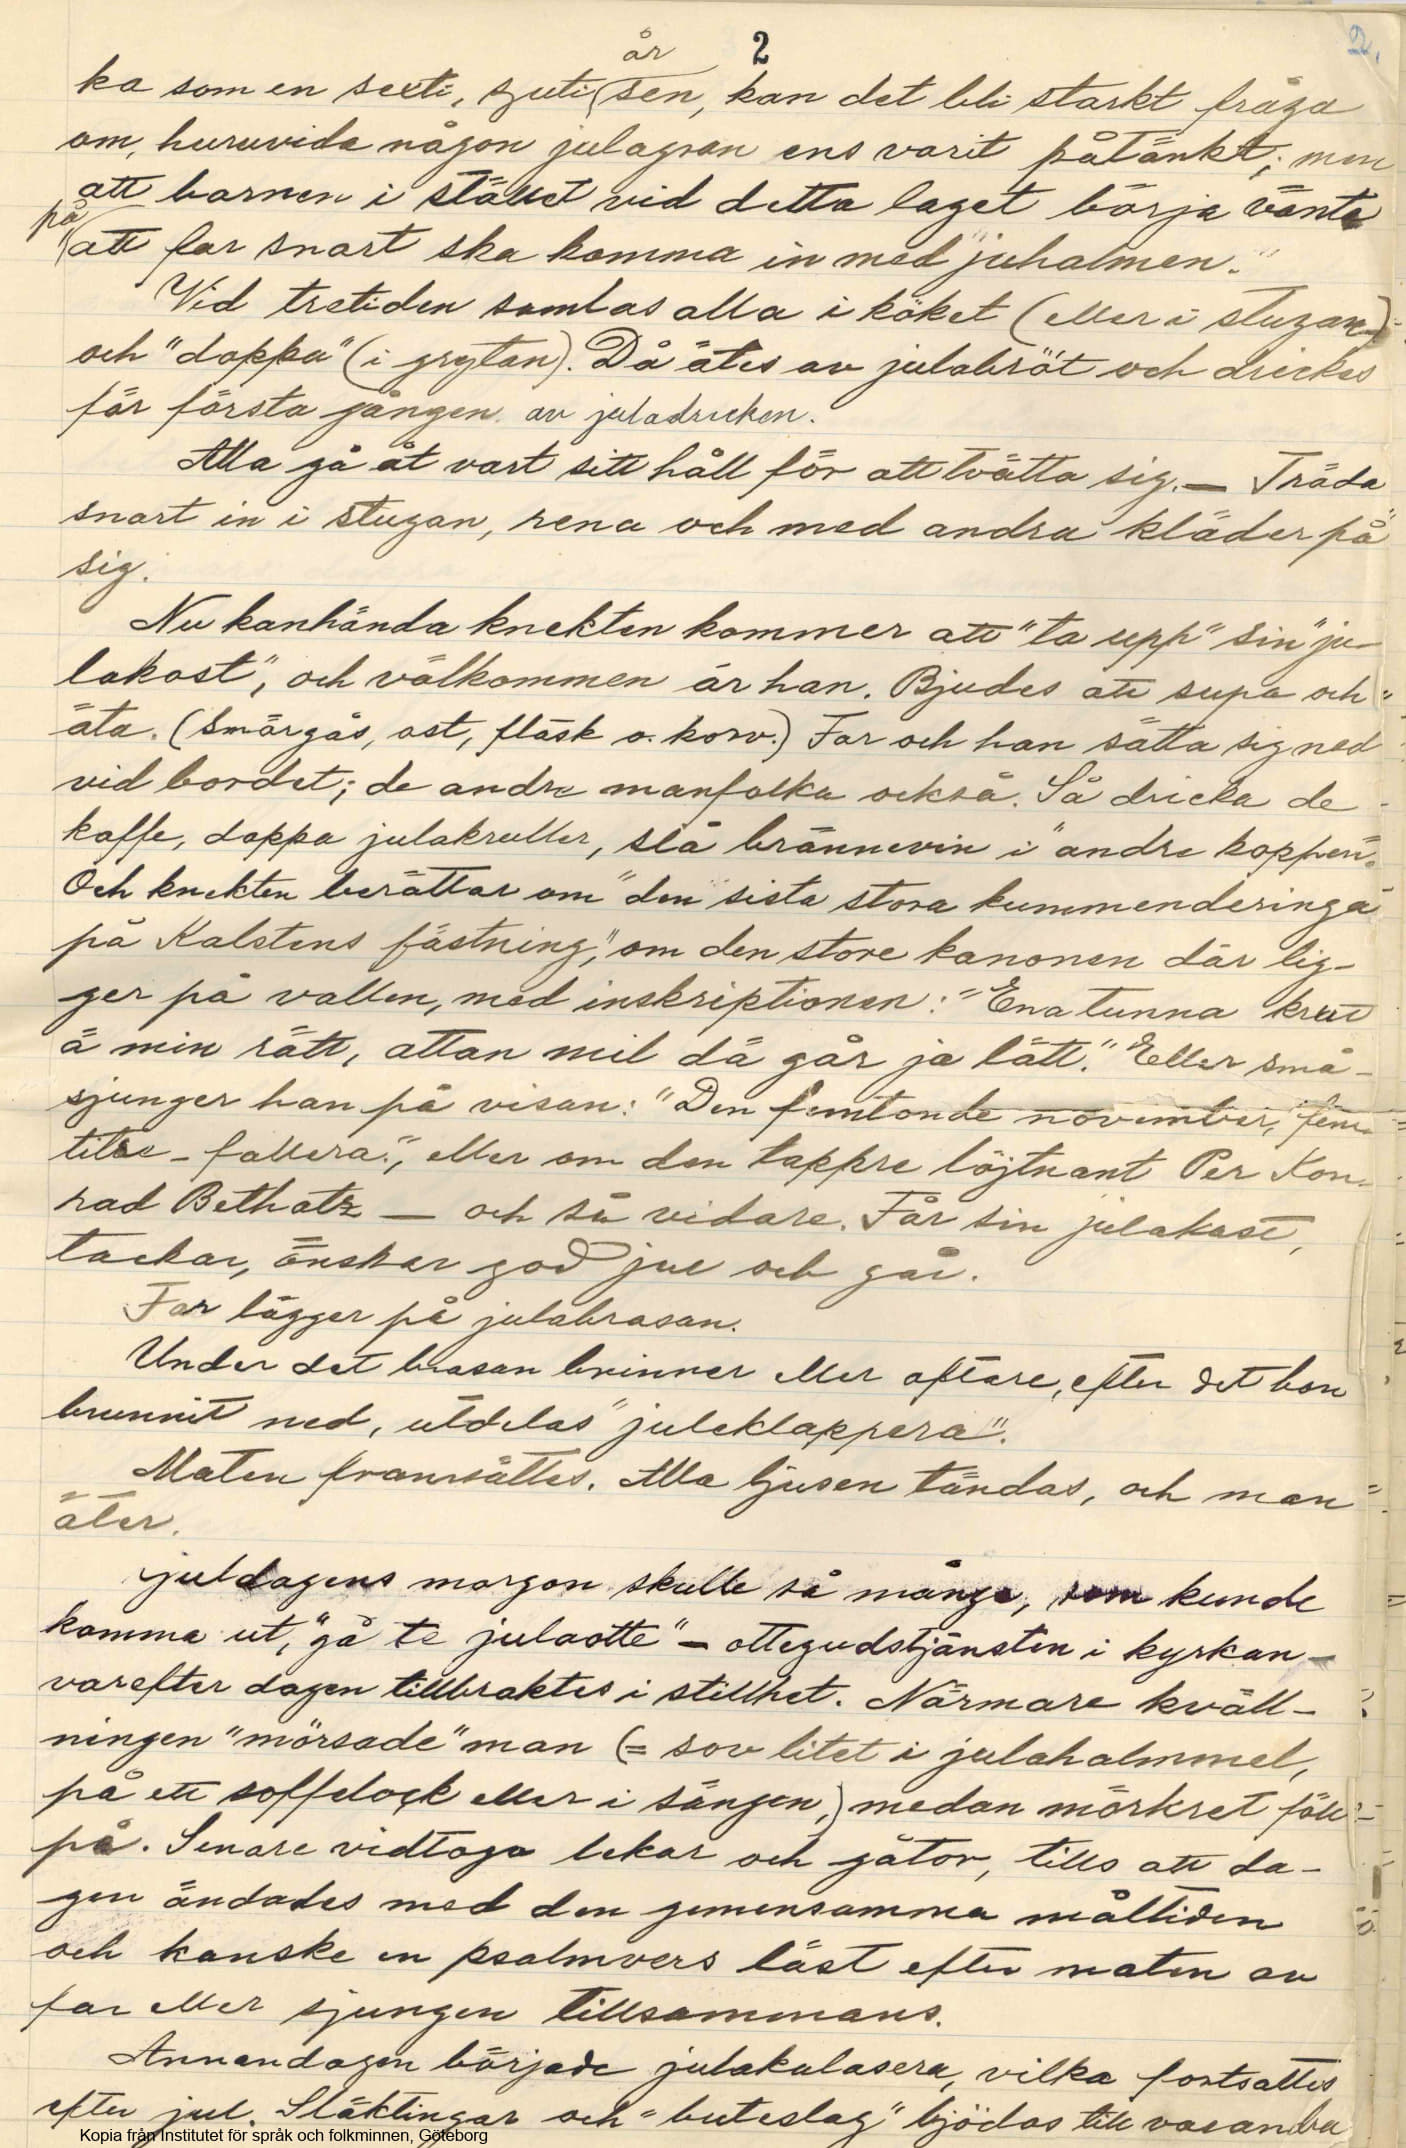 2
2.
ka som en sexti, sjuti år sen, kan det bli starkt fråga
om, huruvida någon julagran ens varit påtänkt; men
att barnen i stället vid detta laget börja vänta
på att far snart ska komma in med "juhalmen."
Vid tretiden samlas alla i köket (eller i stugan)
och "doppa" (i grytan). Då ätes av julabröt och drickes
för första gången av juladricken.
Alla gå åt vart sitt håll för att tvätta sig. — Träda
snart in i stugan, rena och med andra "kläder på"
sig.
Nu kanhända knekten kommer att "ta upp" sin "ju-
lakost", och välkommen är han. Bjudes att supa och
äta. (Smörgås, ost, fläsk o. korv.) Far och han sätta sig ned
vid bordet; de andre manfolka också. Så dricka de
kaffe, doppa julakruller, slå brännevin i "andre koppen".
Och knekten berättar om "den sista stora kummenderinga
på Kalstens fästning," om den store kanonen där lig-
ger på vallen, med inskriptionen: "Ena tunna krut
ä min rätt, attan mil dä går ja lätt." Eller små-
sjunger han på visan: "Den femtonde november, fem-
titre - fallera.", eller om den tappre löjtnant Per Kon-
rad Bethatz — och så vidare. Får sin julakost,
tackar, önskar god jul och går.
Far lägger på julabrasan.
Under det brasan brinner eller oftare, efter det hon
brunnit ned, utdelas "juleklappera".
Maten framsättes. Alla ljusen tändas, och man
äter.
Juldagens morgon skulle så många, som kunde
komma ut, "gå te julaotte" — ottegudstjänsten i kyrkan —
varefter dagen tillbraktes i stillhet. Närmare kväll-
ningen "mörsade" man (= sov litet i julahalmmel,
på ett soffelock eller i sängen,) medan mörkret föll
på. Senare vidtogo lekar och gåtor, tills att da-
gen ändades med den gemensamma måltiden
och kanske en psalmvers läst efter maten av
far eller sjungen tillsammans.
Annandagen började julakalasera, vilka fortsattes
efter jul. Släktingar och "buteslag" bjödos till varandra
Kopia från Institutet för språk och folkminnen, Göteborg